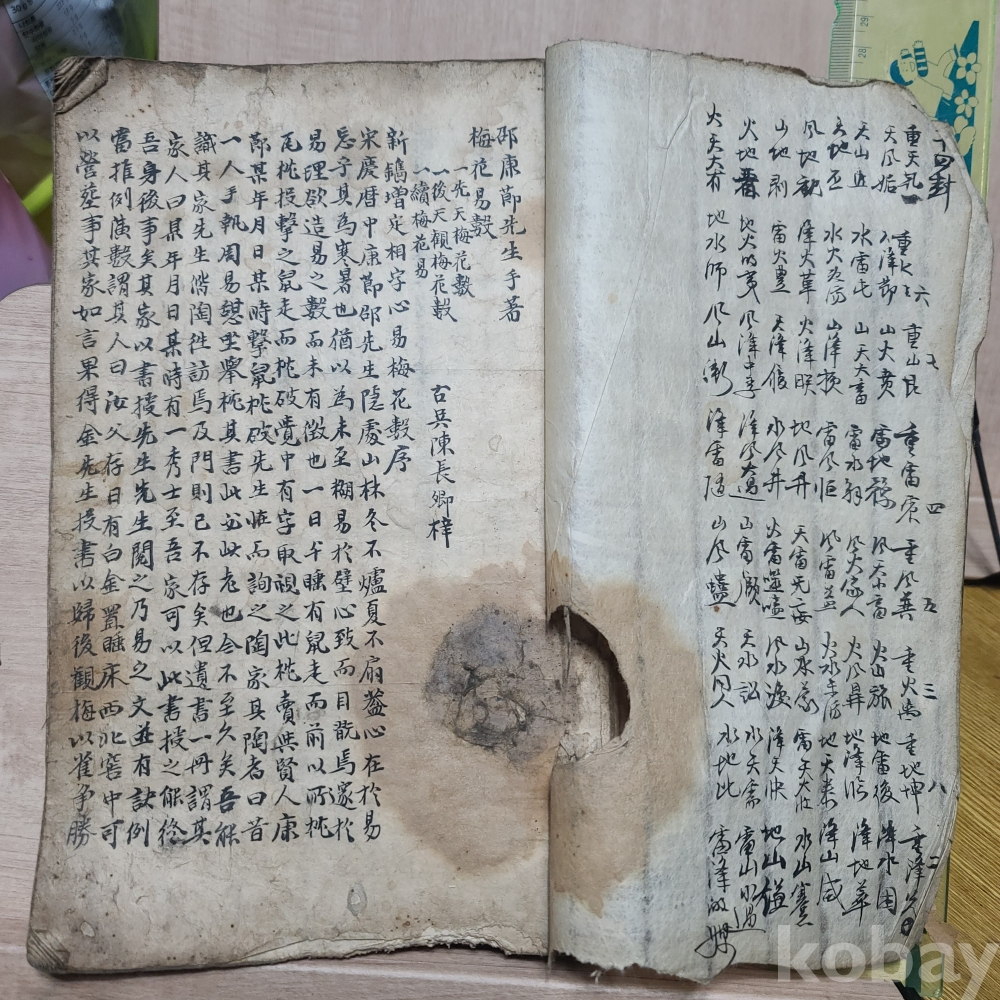 十四卦
重天乾 重水坎 六 重山艮 七 重雷震 四 重風巽 五 重火离 三 重地坤 八 重澤兌 二
天風姤 水澤節 山火賁 雷地豫 風天小畜 火山旅 地雷復 澤水困
天山遯 水雷屯 山天大畜 雷水解 風火家人 火風鼎 地澤臨 澤地萃
天地否 水火既济 山澤損 雷風恒 風雷益 火水未济 地天泰 澤山咸
風地觀 澤火革 火澤睽 地風升 天雷无妄 山水蒙 雷天大壯 水山蹇
山地剝 雷火豊 天澤履 水風井 火雷噬嗑 風水渙 澤天夬 地山謙
火地晋 地火明夷 風澤中孚 澤風大過 山雷頤 天水訟 水天需 雷山小過
火天大有 地水師 風山漸 澤雷隨 山風蠱 天火同人 水地比 雷澤歸妹
邵康節先生手著
梅花易數
一先天梅花數
一後天觀梅花數
一續梅花易
古吳陳長卿梓
新鐫增定相字心易梅花數序
宋慶曆中康節邵先生隱處山林冬不爐夏不扇盖心在於易
忘乎其為寒暑也猶以為未至糊易於壁心致而目翫焉邃於
易理欲造易之數而未有徵也一日午睡有鼠走而前以所枕
瓦枕投擊之鼠走而枕破覺中有字取視之此枕賣與賢人康
節某年月日某時擊鼠枕破先生恠而詢之陶家其陶者曰昔
一人手執周易憇坐擧枕其書此必此老也今不至久矣吾能
識其家先生偕陶徃訪焉及門則已不存矣但遺書一冊謂其
家人曰某年月日某時有一秀士至吾家可以此書授之能終
吾身後事矣其家以書授先生先生閱之乃易之文並有訣例
當推例演數謂其人曰汝父存日有白金置睡床西北窖中可
以營葬事其家如言果得金先生授書以歸後觀梅以雀爭勝
29
28
kobay